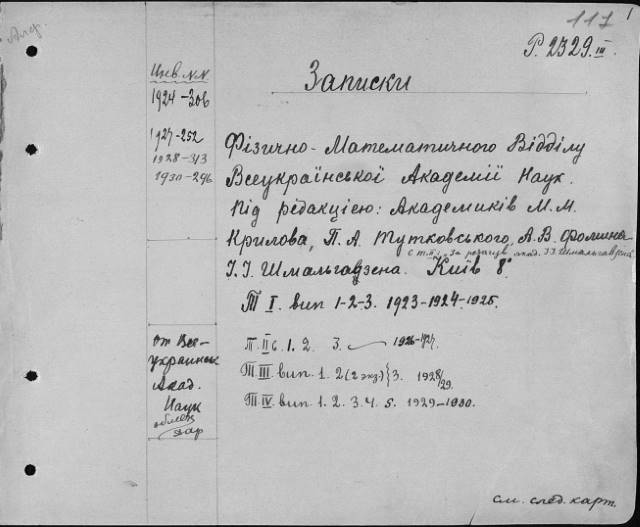 Алф.
117
1
Р. 2329 III
Инв. N.N
1924-306
1927-252
1928-313
1930-296
Записки
Фізично-Математичного Відділу
Всеукраїнської Академії Наук.
Під редакцією: Академиків М.М.
Крилова, П.А. Тутковського, А.В. Фомина
с т. II: за редакц. акад. І.І. Шмальгаузена
І.І. Шмальгаузена. Київ 8°
Т I. вип 1-2-3. 1923-1924-1925.
Т. II в. 1. 2. 3. 1926-1927.
Т. III вип. 1. 2 (2 экз.) } 3. 1928/29.
Т. IV. вип. 1. 2. 3. 4. 5. 1929-1930.
от Все-
украинск
Акад.
Наук
обмен
дар
см. след. карт.